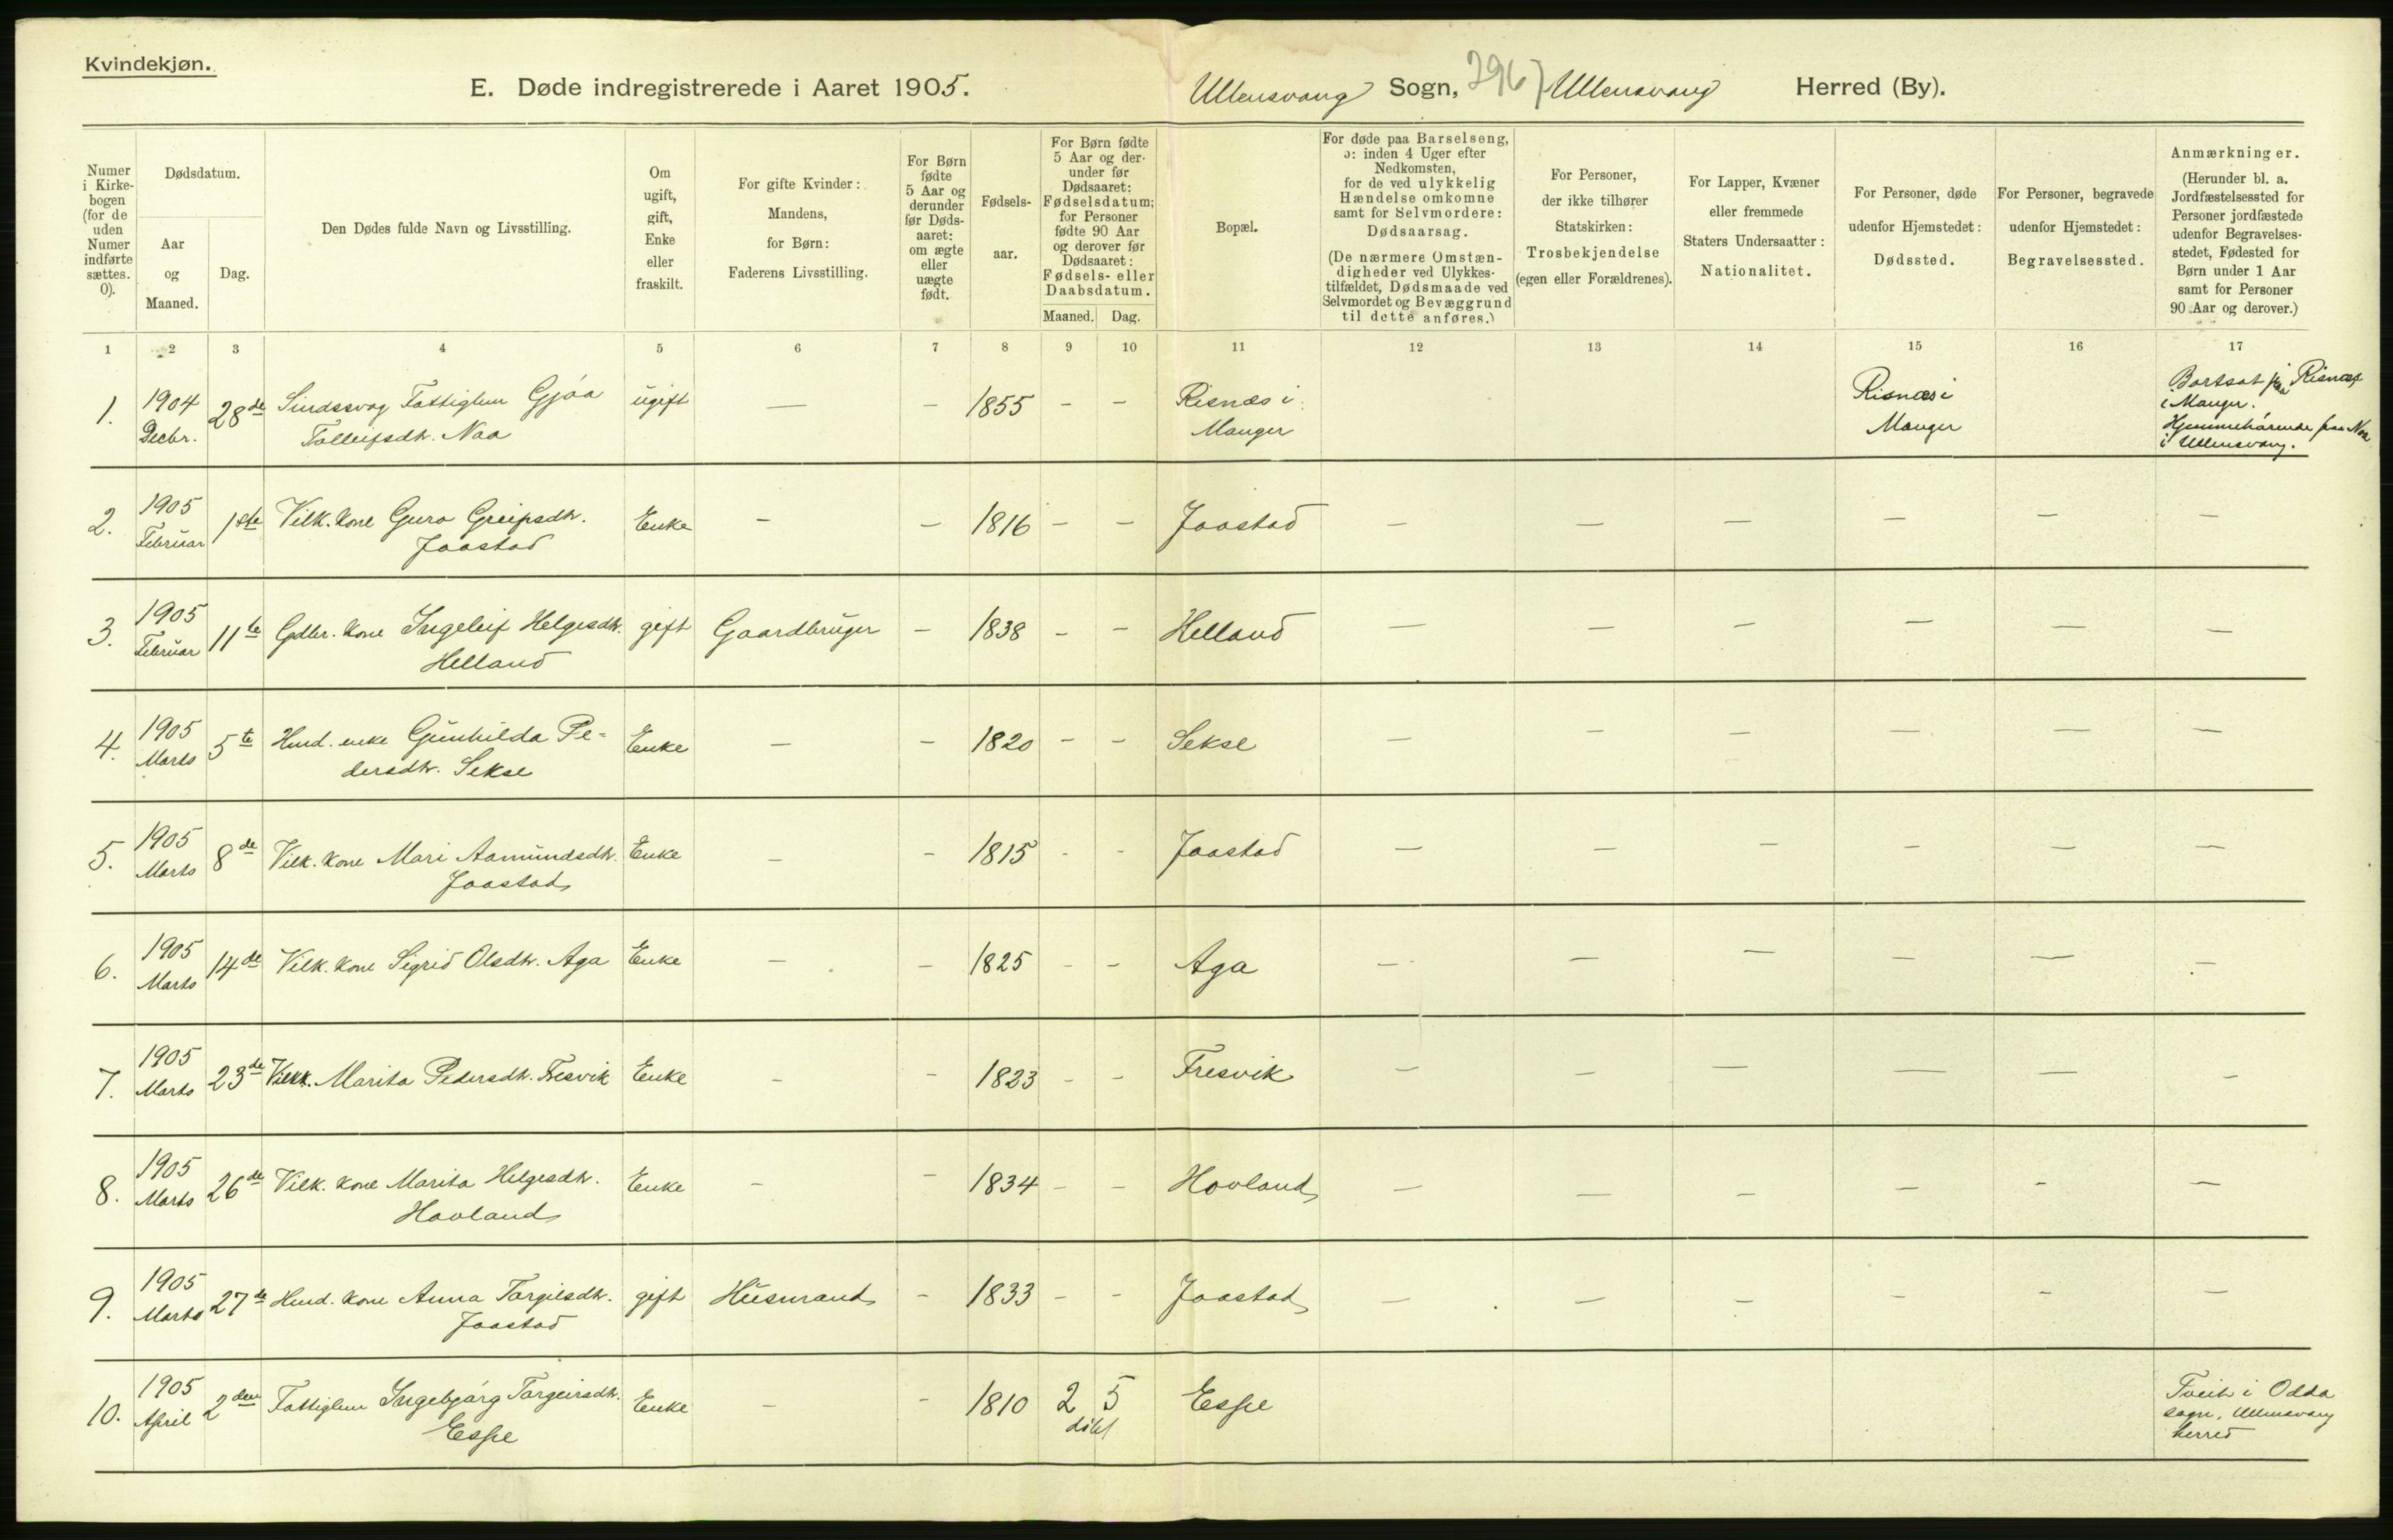 Kvindekjøn.
E. Døde indregistrerede i Aaret 1905.
Ullensvang Sogn, 296) Ullensvang Herred (By).
Numer i Kirkebogen (for de uden Numer indførte sættes. 0).
Dødsdatum.
Aar og Maaned.
Dag.
Den Dødes fulde Navn og Livsstilling.
Om ugift, gift, Enke eller fraskilt.
For gifte Kvinder: Mandens, for Børn: Faderens Livsstilling.
For Børn fødte 5 Aar og derunder før Dødsaaret: om ægte eller uægte født.
Fødselsaar.
For Børn fødte 5 Aar og derunder før Dødsaaret: Fødselsdatum; for Personer fødte 90 Aar og derover før Dødsaaret: Fødsels- eller Daabsdatum.
Maaned. Dag.
Bopæl.
For døde paa Barselseng, ɔ: inden 4 Uger efter Nedkomsten, for de ved ulykkelig Hændelse omkomne samt for Selvmordere: Dødsaarsag.
(De nærmere Omstændigheder ved Ulykkestilfældet, Dødsmaade ved Selvmordet og Bevæggrund til dette anføres.)
For Personer, der ikke tilhører Statskirken: Trosbekjendelse (egen eller Forældrenes).
For Lapper, Kvæner eller fremmede Staters Undersaatter: Nationalitet.
For Personer, døde udenfor Hjemstedet: Dødssted.
For Personer, begravede udenfor Hjemstedet: Begravelsessted.
Anmærkninger.
(Herunder bl. a. Jordfæstelsessted for Personer jordfæstede udenfor Begravelsesstedet, Fødested for Børn under 1 Aar samt for Personer 90 Aar og derover.)
1 2 3 4 5 6 7 8 9 10 11 12 13 14 15 16 17
1. 1904 Decbr. 28de Sindssvag Fattiglem Gjøa ugift — — 1855 — — Risnæs i Risnæs i Bortsat paa Risnæs
Tolleifsdtr. Naa Manger Manger i Manger.
Hjemmehørende paa Naa
i Ullensvang.
2. 1905 Februar 1ste Vilk. kone Guro Greipsdtr. Enke — — 1816 — — Jaastad — — — — — —
Jaastad
3. 1905 Februar 11te Gdbr. kone Ingeleif Helgesdtr. gift Gaardbruger — 1838 — — Helland — — — — — —
Helland
4. 1905 Marts 5te Husd. enke Gunhilda Pe= Enke — — 1820 — — Sekse — — — — — —
dersdtr. Sekse
5. 1905 Marts 8de Vilk. kone Mari Aamundsdtr. Enke — — 1815 — — Jaastad — — — — — —
Jaastad
6. 1905 Marts 14de Vilk. kone Sigrid Olsdtr. Aga Enke — — 1825 — — Aga — — — — — —
7. 1905 Marts 23de Vilkk. Marita Pedersdtr. Fresvik Enke — — 1823 — — Fresvik — — — — — —
8. 1905 Marts 26de Vilk. kone Marita Helgesdtr. Enke — — 1834 — — Hovland — — — — — —
Hovland
9. 1905 Marts 27de Husd. kone Anna Torgilsdtr. gift Husmand — 1833 — — Jaastad — — — — — —
Jaastad
10. 1905 April 2den Fattiglem Ingebjørg Torgeirsdtr. Enke — — 1810 2 5 Espe Tveit i Odda
Espe døbt sogn, Ullensvang
herred